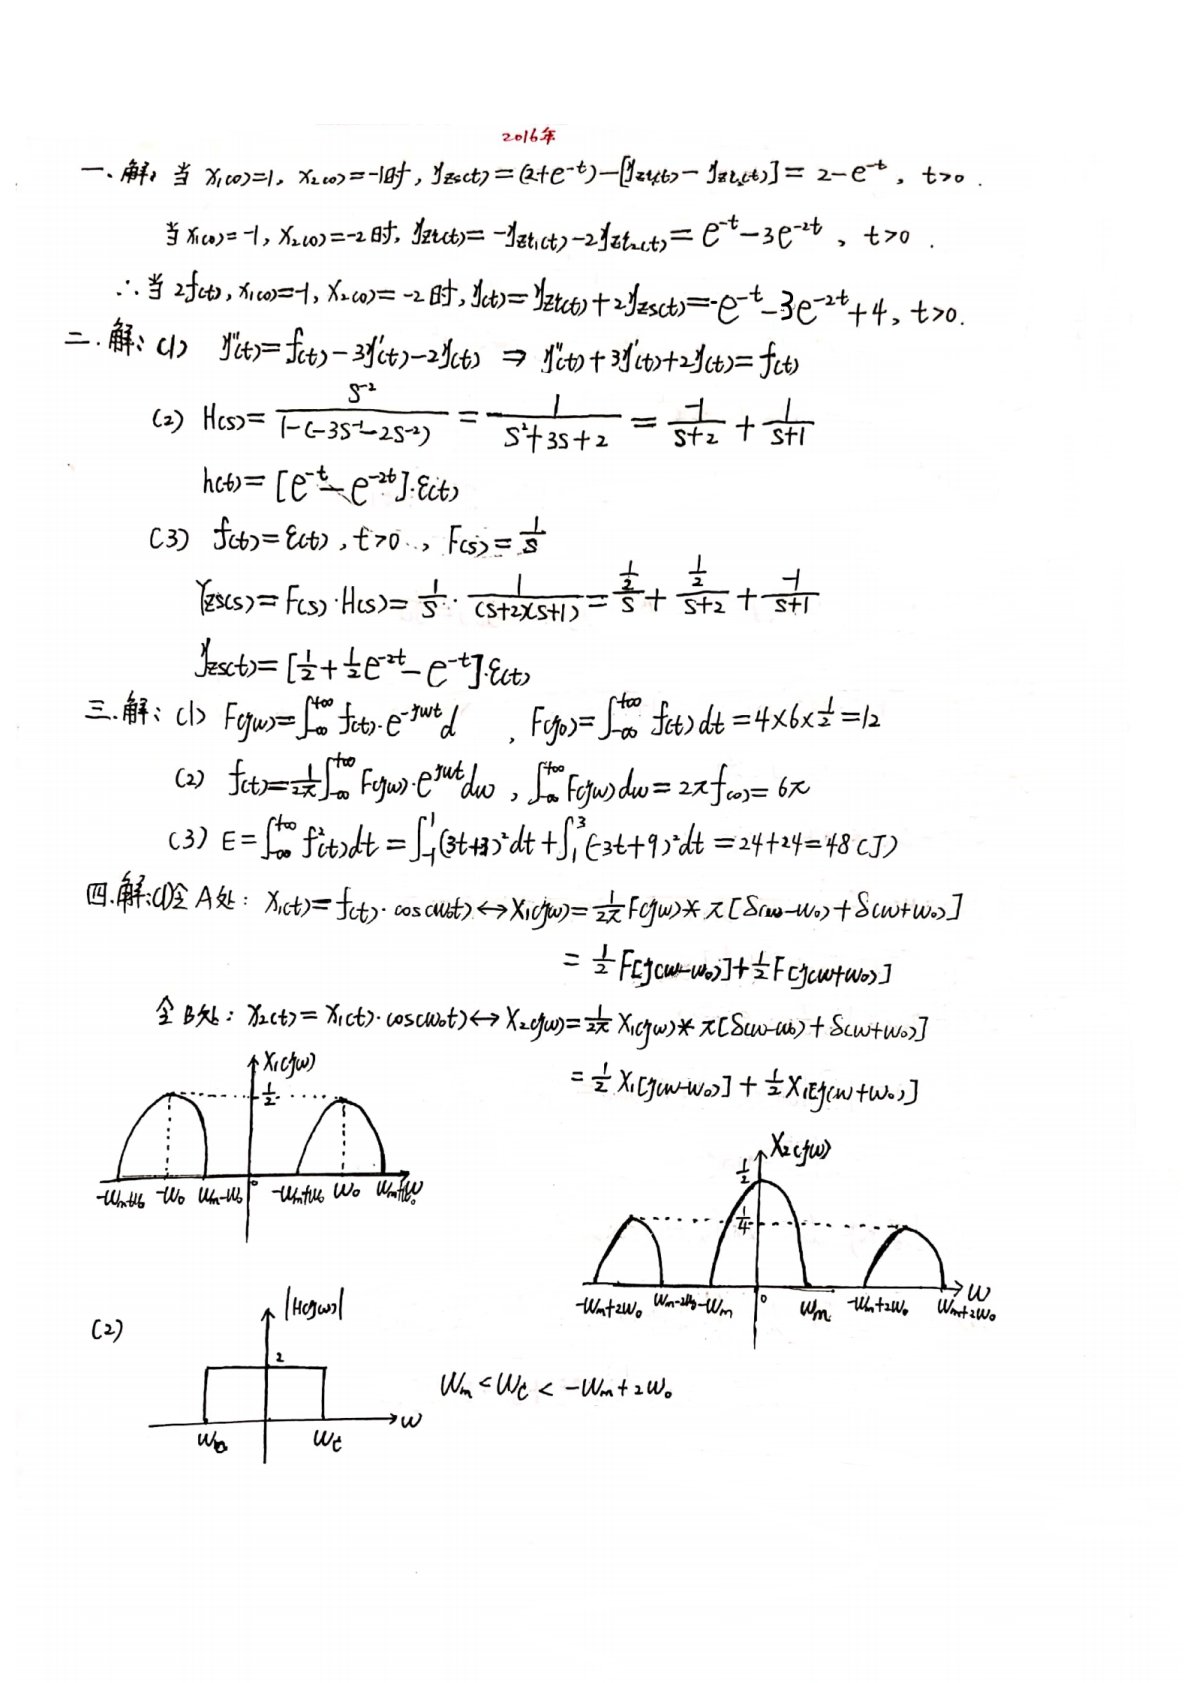 2016年
一、解: 当 x₁(0)=1, x₂(0)=-1时, yzs(t)=(2+e^{-t})-[yzt₁(t)-yzt₂(t)]=2-e^{-t}, t>0.
当x₁(0)=-1, x₂(0)=-2时, yzt(t)=-yzt₁(t)-2yzt₂(t)=e^{-t}-3e^{-2t}, t>0.
∴当2f(t), x₁(0)=-1, x₂(0)=-2时, y(t)=yzt(t)+2yzs(t)=-e^{-t}-3e^{-2t}+4, t>0.
二.解: (1) y''(t)=f(t)-3y'(t)-2y(t) ⇒ y''(t)+3y'(t)+2y(t)=f(t)
(2) H(s)=\frac{s^{-2}}{1-(-3s^{-1}-2s^{-2})}=\frac{1}{s²+3s+2}=\frac{-1}{s+2}+\frac{1}{s+1}
h(t)=[e^{-t}-e^{-2t}]·ε(t)
(3) f(t)=ε(t), t>0, F(s)=\frac{1}{s}
Yzs(s)=F(s)·H(s)=\frac{1}{s}·\frac{1}{(s+2)(s+1)}=\frac{\frac{1}{2}}{s}+\frac{\frac{1}{2}}{s+2}+\frac{-1}{s+1}
yzs(t)=[\frac{1}{2}+\frac{1}{2}e^{-2t}-e^{-t}]·ε(t)
三.解: (1) F(jω)=∫_{-∞}^{+∞} f(t)·e^{-jωt}d , F(j0)=∫_{-∞}^{+∞} f(t)dt=4×6×\frac{1}{2}=12
(2) f(t)=\frac{1}{2π}∫_{-∞}^{+∞} F(jω)·e^{jωt}dω, ∫_{-∞}^{+∞} F(jω)dω=2πf(0)=6π
(3) E=∫_{-∞}^{+∞} f²(t)dt=∫_{-1}^{1}(3t+3)²dt+∫_{1}^{3}(-3t+9)²dt=24+24=48(J)
四.解:(1)全A处: x₁(t)=f(t)·cos(ω₀t)↔X₁(jω)=\frac{1}{2π}F(jω)*π[δ(ω-ω₀)+δ(ω+ω₀)]
=\frac{1}{2}F[j(ω-ω₀)]+\frac{1}{2}F[j(ω+ω₀)]
全B处: x₂(t)=x₁(t)·cos(ω₀t)↔X₂(jω)=\frac{1}{2π}X₁(jω)*π[δ(ω-ω₀)+δ(ω+ω₀)]
=\frac{1}{2}X₁[j(ω-ω₀)]+\frac{1}{2}X₁[j(ω+ω₀)]
X₁(jω)
\frac{1}{2}
-ωm-ω₀ -ω₀ ωm-ω₀ 0 -ωm+ω₀ ω₀ ωm+ω₀ ω
X₂(jω)
\frac{1}{2}
\frac{1}{4}
-ωm+2ω₀ ωm-2ω₀ -ωm 0 ωm -ωm+2ω₀ ωm+2ω₀ ω
(2)
|H(jω)|
2
ωc ω
ωm<ωc<-ωm+2ω₀